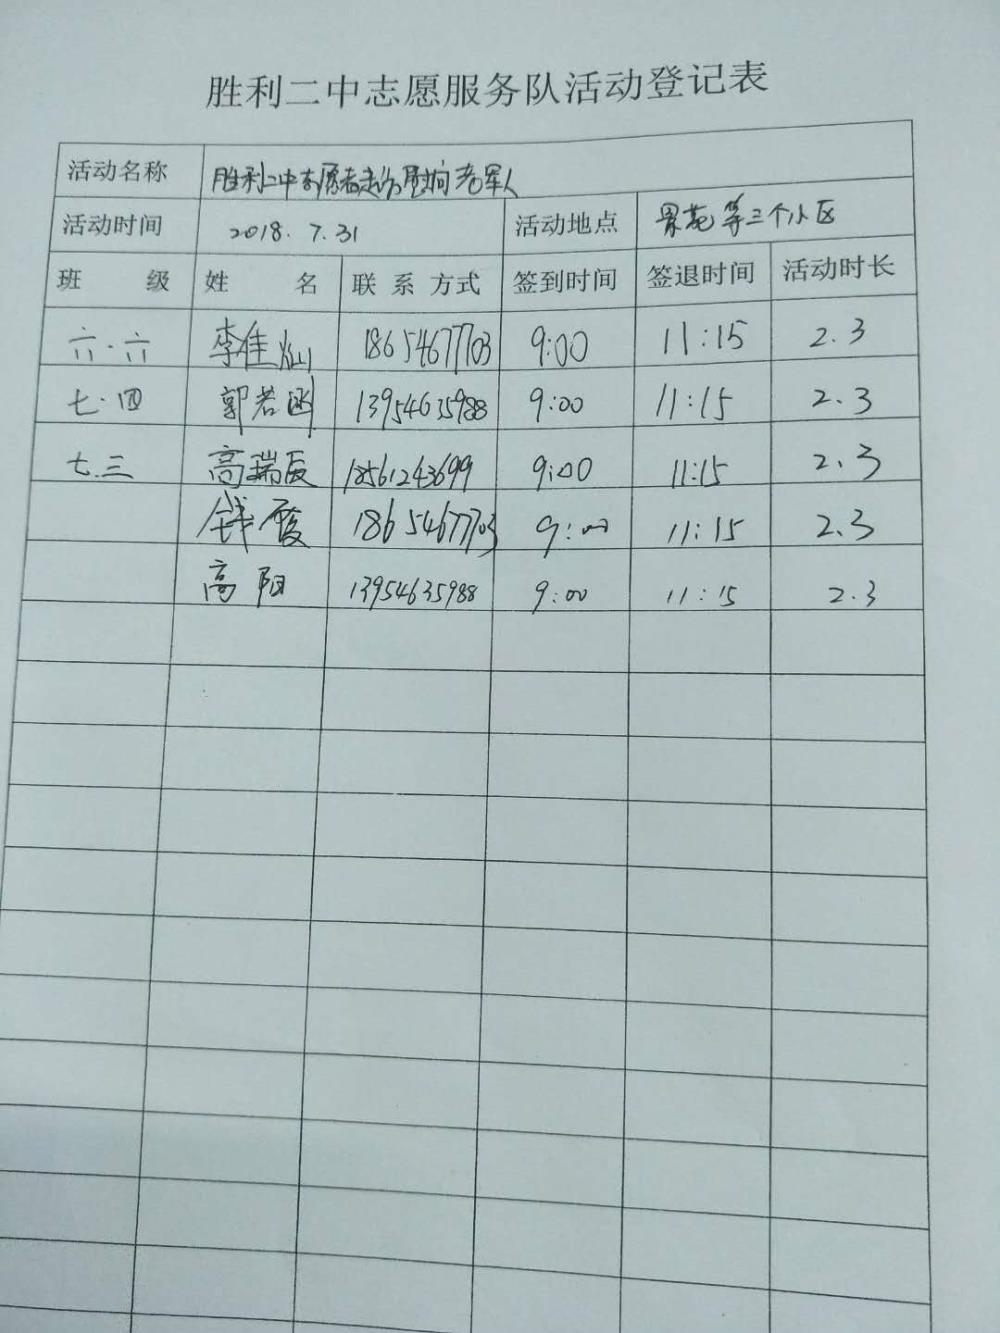 胜利二中志愿服务队活动登记表
活动名称 胜利二中志愿者走访慰问老军人
活动时间 2018.7.31 活动地点 景苑等三个小区
班级 姓名 联系方式 签到时间 签退时间 活动时长
六.六 李佳灿 18654677703 9:00 11:15 2.3
七.四 郭若涵 13954635988 9:00 11:15 2.3
七.三 高瑞辰 18561243699 9:00 11:15 2.3
钱霞 18654677703 9:00 11:15 2.3
高阳 13954635988 9:00 11:15 2.3